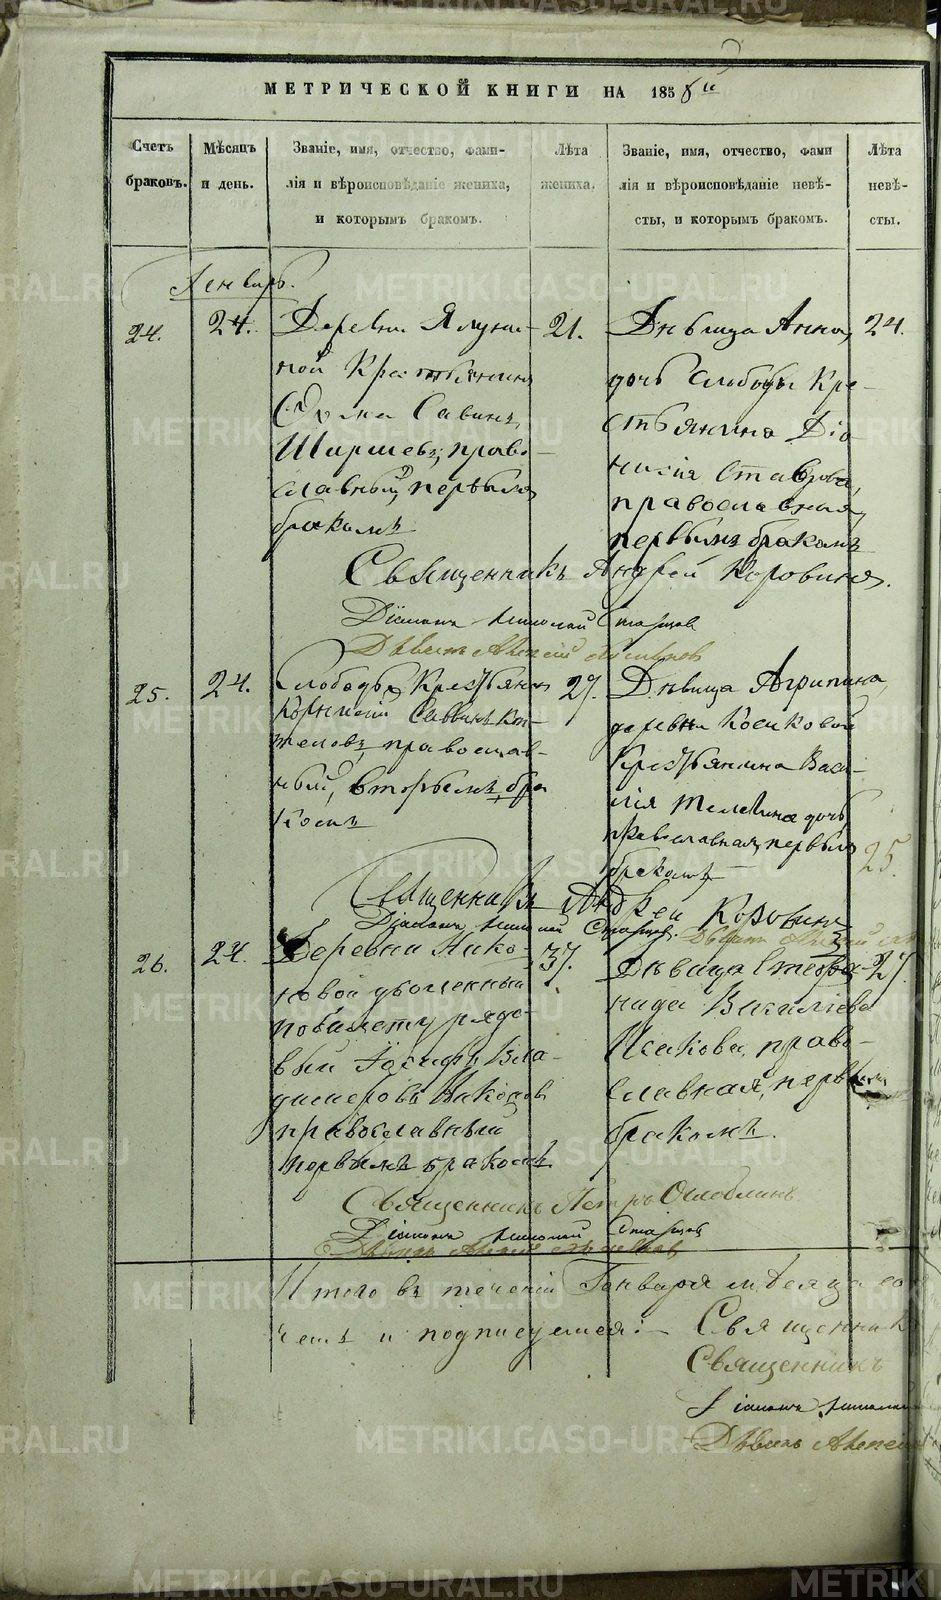 МЕТРИЧЕСКОЙ КНИГИ НА 1858й
Счетъ браковъ.
Мѣсяцъ и день.
Званіе, имя, отчество, фами-
лія и вѣроисповѣданіе жениха,
и которымъ бракомъ.
Лѣта жениха.
Званіе, имя, отчество, фами
лія и вѣроисповѣданіе невѣ-
сты, и которымъ бракомъ.
Лѣта невѣ-
сты.
Генварь.
24.
24.
Деревни Ялуни-
ной Крестьянинъ
Ѳома Савинъ
Ширшевъ, право-
славный, первымъ
бракомъ
21.
Дѣвица Анна,
дочь слободы Кре-
стьянина Діо-
нисія
православная,
первымъ бракомъ
24.
Священникъ Андрей Коровинъ.
Діаконъ Николай Старцов
Дьячекъ Алексій
25.
24.
Слободы Крестьянин
Корнилій Саввинъ Ко-
теловъ, православ-
ный, вторымъ бра
комъ
27.
Дѣвица Агрипина,
деревни Косиковой
Крестьянина Васи-
лія Телегина дочь,
православная, первымъ
бракомъ
25.
Священникъ Андрей Коровин
Діаконъ Николай Старцов.
26.
24.
Деревни Нико-
новой уволенный
по билету рядо-
вый Іосифъ Вла-
димеровъ
православный
первымъ бракомъ
37.
Дѣвица Стефа-
нида Василіева
Исакова, право-
славная, первымъ
бракомъ.
27.
Священникъ Петръ Оглоблинъ
Діаконъ Николай Старцов
Итого въ теченіи Генваря мѣсяца
чемъ и подписуемся:- Священник
Священникъ
Діаконъ Николай
Дьячекъ Алексей
METRIKI.GASO-URAL.RU